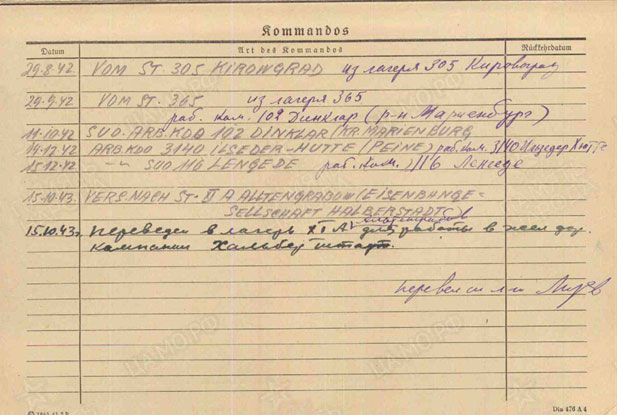 Kommandos
Datum Art des Kommandos Rückkehrdatum
29.8.42 VOM ST. 305 KIROWGRAD из лагеря 305 Кировоград
24.9.42 VOM ST. 365 из лагеря 365
раб. ком. 102 Динклар (р-н Мариенбург)
11.10.42 SUD. ARB. KDO 102 DINKLAR (KR. MARIENBURG
14.12.42 ARB. KDO 3140 ILSEDER-HÜTTE (PEINE) раб. ком. 3140 Ильзедер Хютте
15.12.42 -"- SUD 116 LENGEDE раб. ком. 116 Ленгеде
15.10.43. VERS. NACH ST. XI A ALTENGRABOW (EISENBAHNGE-
SELLSCHAFT HALBERSTADT)
15.10.43. переведен в лагерь XI А для работы в жел. дор.
компании Хальберштадт.
перевел
ЦАМО РФ
Din 476 A 4